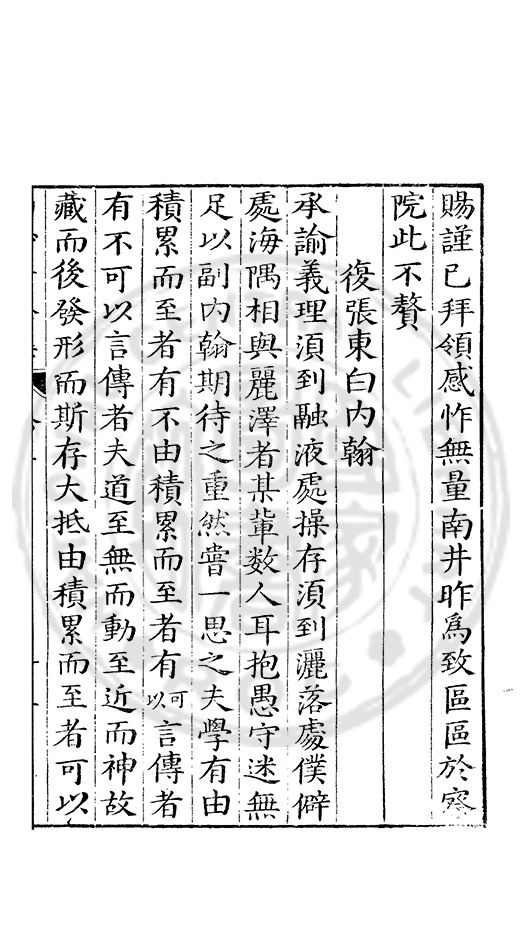 賜謹已拜領感怍無量南井昨為致區區於察
院此不贅
復張東白內翰
承諭義理須到融液處操存須到灑落處僕僻
處海隅相與麗澤者某輩数人耳抱愚守迷無
足以副內翰期待之重然嘗一思之夫學有由
積累而至者有不由積累而至者有可以言傳者
有不可以言傳者夫道至無而動至近而神故
藏而後發形而斯存大抵由積累而至者可以